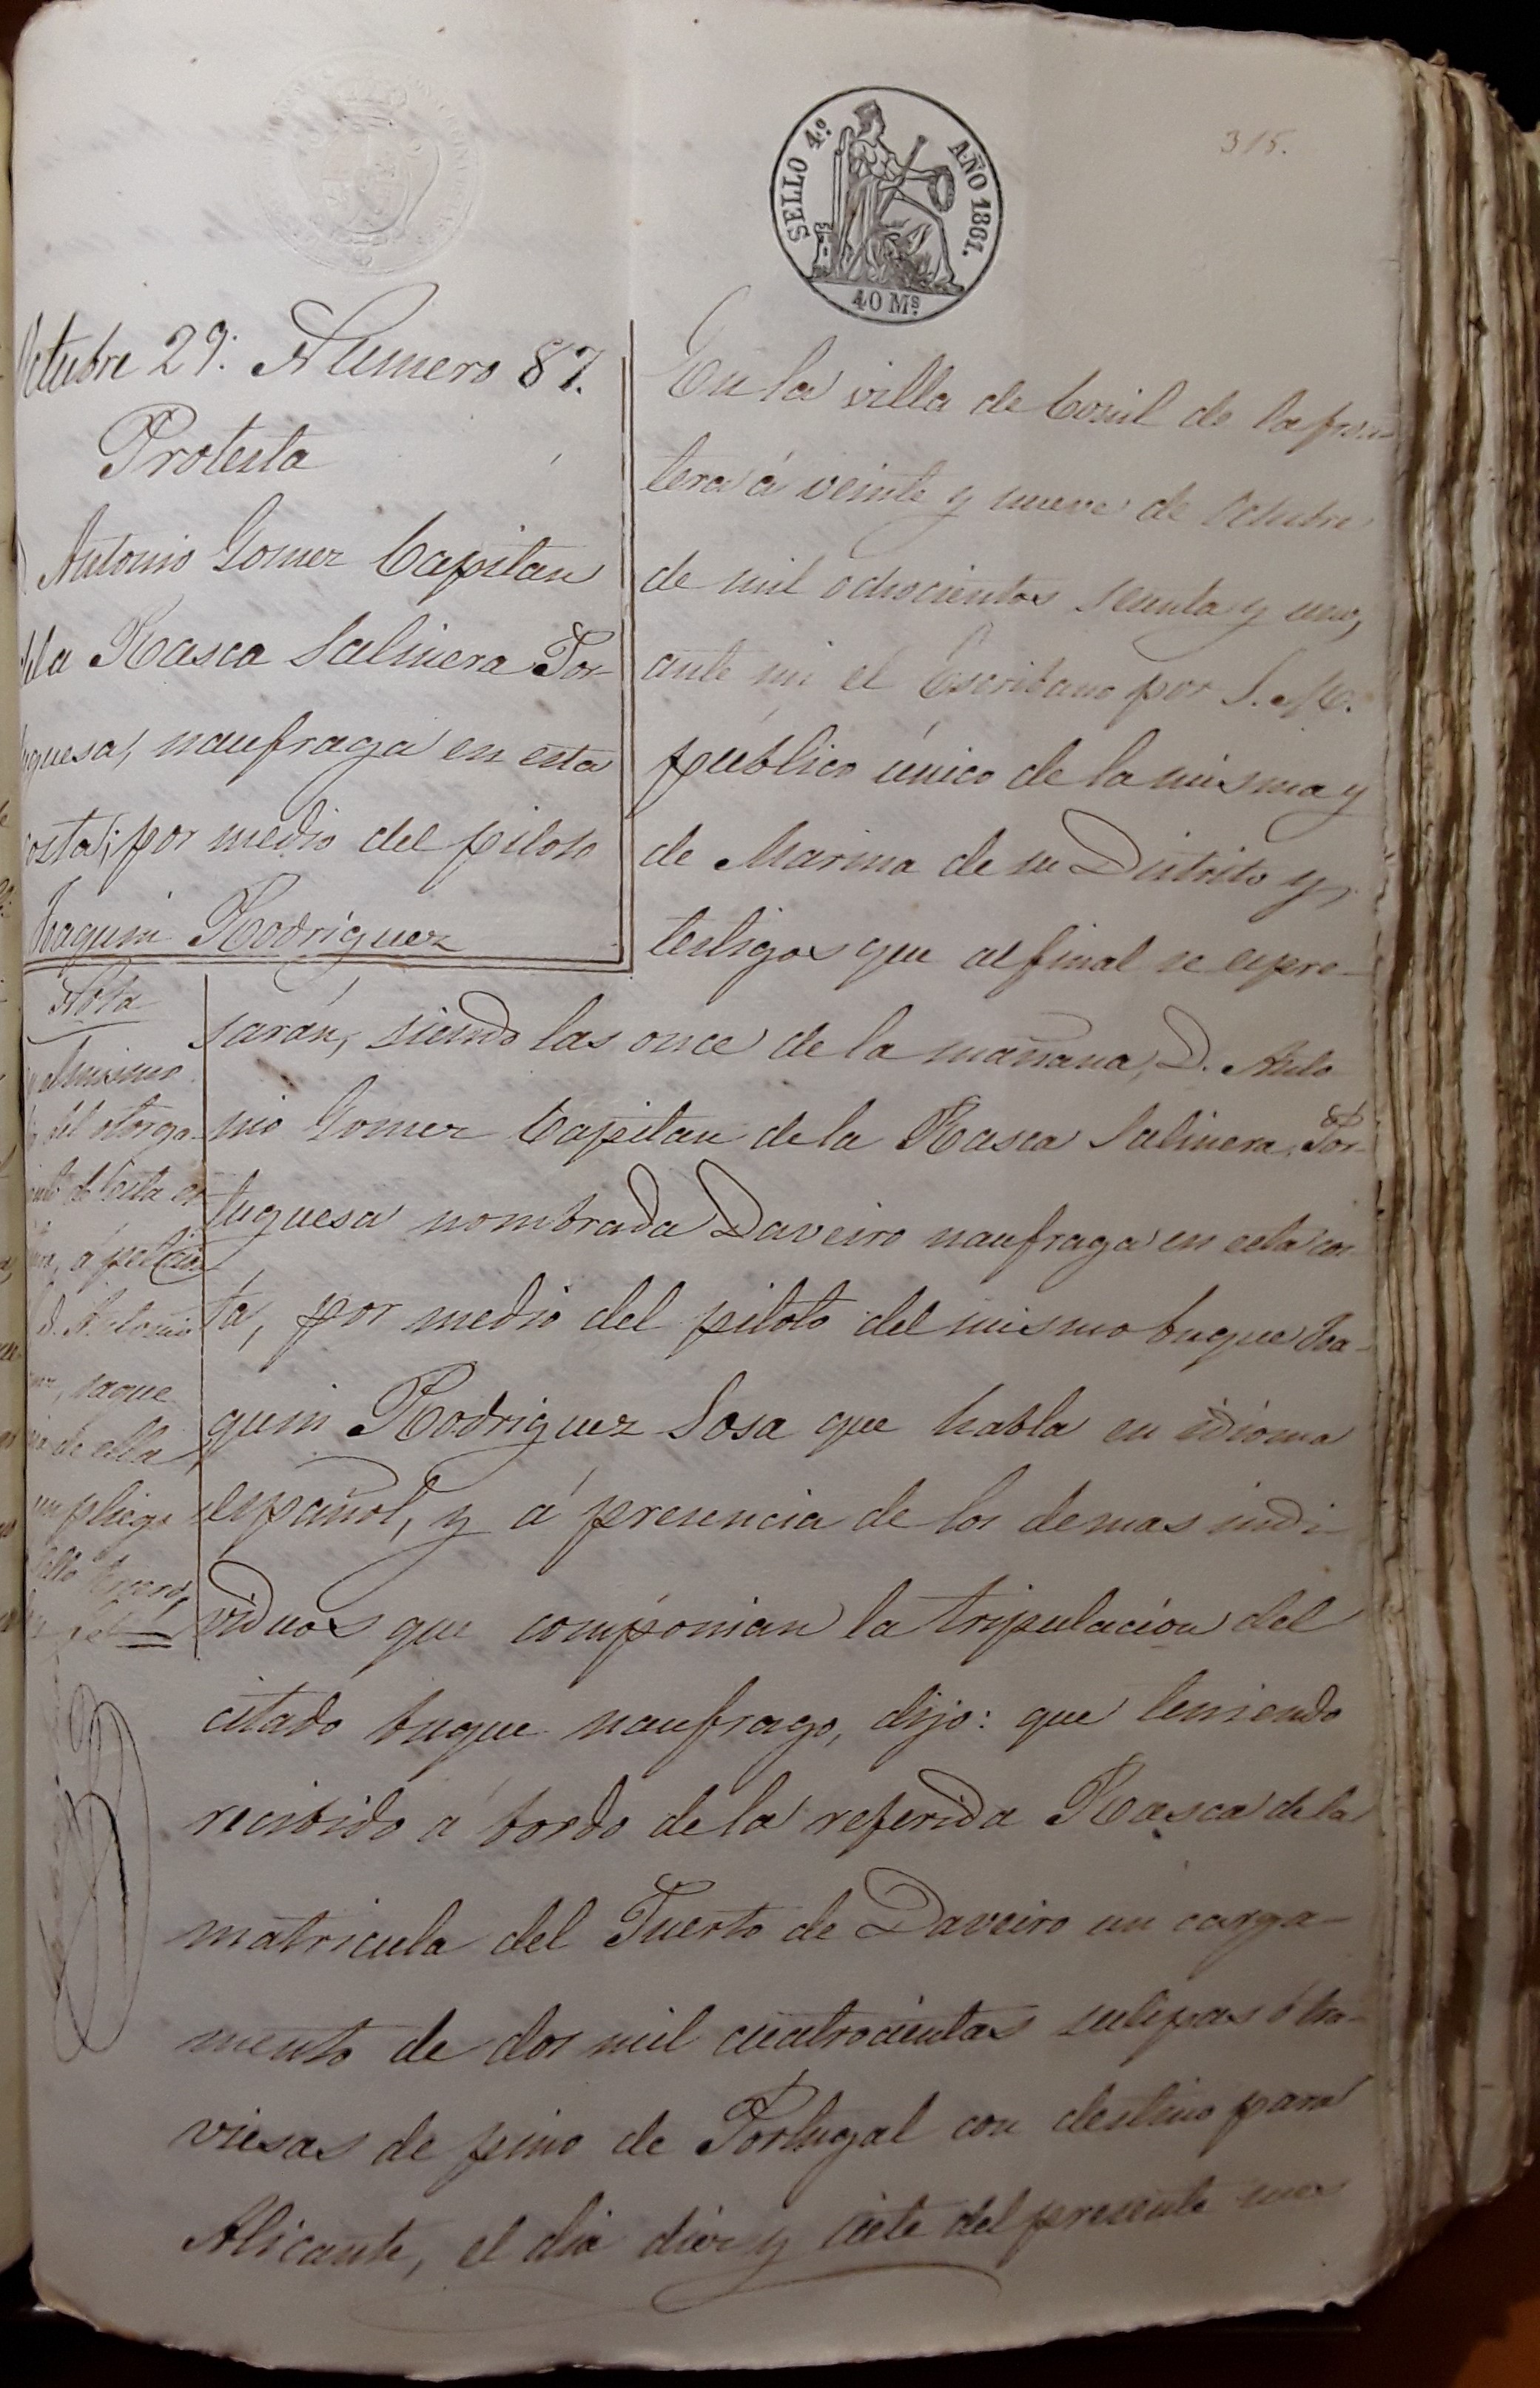 SELLO 4.º AÑO 1861.
40 Mˢ
315.
Octubre 29. Numero 87.
Protesta
Antonio Gomez Capitan
de la Rasca Salinera Por-
tuguesa, naufraga en esta
costa; por medio del piloto
Joaquin Rodriguez
En la villa de Conil de la fron-
tera á veinte y nueve de Octubre
de mil ochocientos sesenta y uno,
ante mi el Escribano por S. M.
público único de la misma y
de Marina de su Distrito y
testigos que al final se espre-
sarán, siendo las once de la mañana, D. Anto
nio Gomez Capitan de la Rasca Salinera Por-
tuguesa nombrada Daveiro naufraga en esta cos-
ta, por medio del piloto del mismo buque Joa-
quin Rodriguez Sosa que habla en idioma
español, y á presencia de los demas indi-
viduos que componian la tripulacion del
citado buque naufrago, dijo: que teniendo
recibido á bordo de la referida Rasca de la
matricula del Puerto de Daveiro un carga-
mento de dos mil cuatrocientas sulipas ó tra-
viesas de pino de Portugal con destino para
Alicante, el dia diez y siete del presente mes
Nota
el mismo
del otorga-
de esta es-
á peticion
D. Antonio
saque
de ella
un pliego
Sello tercero,